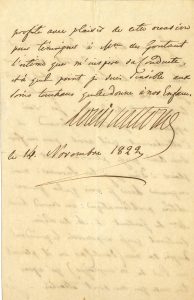 profite avec plaisir de cette occasion
pour témoigner à Mme de Gontaut
l'intérêt que m'inspire sa conduite,
et à quel point je suis sensible aux
soins touchans qu'elle donne à nos Enfans.
le 14 Novembre 1822